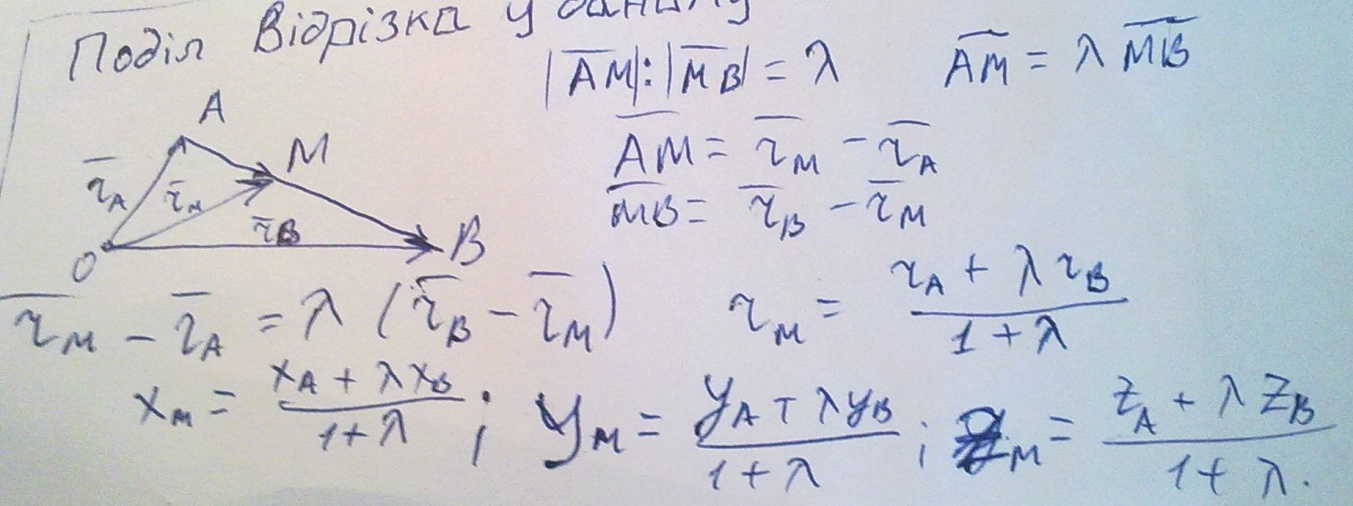 Поділ Відрізка у даному
|A̅M̅|:|M̅B̅| = λ    A̅M̅ = λ M̅B̅
A
M
r̅_A
r̅_M
r̅_B
O
B
A̅M̅ = r̅_M - r̅_A
M̅B̅ = r̅_B - r̅_M
r̅_M - r̅_A = λ (r̅_B - r̅_M)    r_M = (r_A + λ r_B)/(1 + λ)
x_M = (x_A + λ x_B)/(1 + λ) ; y_M = (y_A + λ y_B)/(1 + λ) ; z_M = (z_A + λ z_B)/(1 + λ).